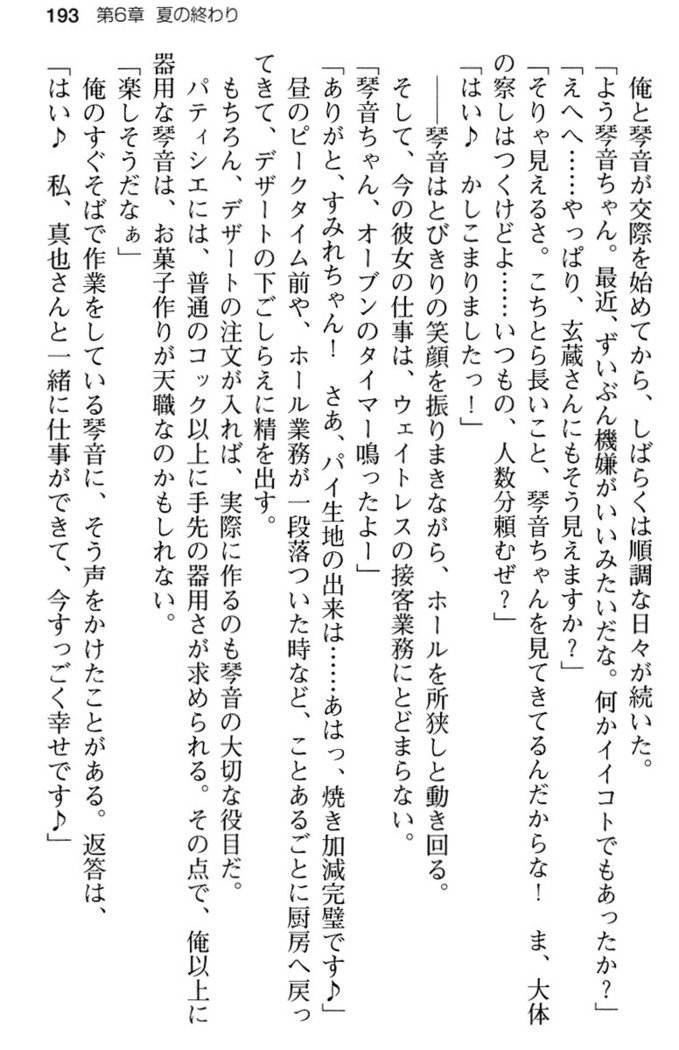 193 第6章 夏の終わり
俺と琴音が交際を始めてから、しばらくは順調な日々が続いた。
「よう琴音ちゃん。最近、ずいぶん機嫌がいいみたいだな。何かイイコトでもあったか？」
「えへへ……やっぱり、玄蔵さんにもそう見えますか？」
「そりゃ見えるさ。こちとら長いこと、琴音ちゃんを見てきてるんだからな！　ま、大体
の察しはつくけどよ……いつもの、人数分頼むぜ？」
「はい♪　かしこまりましたっ！」
――琴音はとびきりの笑顔を振りまきながら、ホールを所狭しと動き回る。
そして、今の彼女の仕事は、ウェイトレスの接客業務にとどまらない。
「琴音ちゃん、オーブンのタイマー鳴ったよー」
「ありがと、すみれちゃん！　さあ、パイ生地の出来は……あはっ、焼き加減完璧です♪」
昼のピークタイム前や、ホール業務が一段落ついた時など、ことあるごとに厨房へ戻っ
てきて、デザートの下ごしらえに精を出す。
もちろん、デザートの注文が入れば、実際に作るのも琴音の大切な役目だ。
パティシエには、普通のコック以上に手先の器用さが求められる。その点で、俺以上に
器用な琴音は、お菓子作りが天職なのかもしれない。
「楽しそうだなぁ」
俺のすぐそばで作業をしている琴音に、そう声をかけたことがある。返答は、
「はい♪　私、真也さんと一緒に仕事ができて、今すっごく幸せです♪」